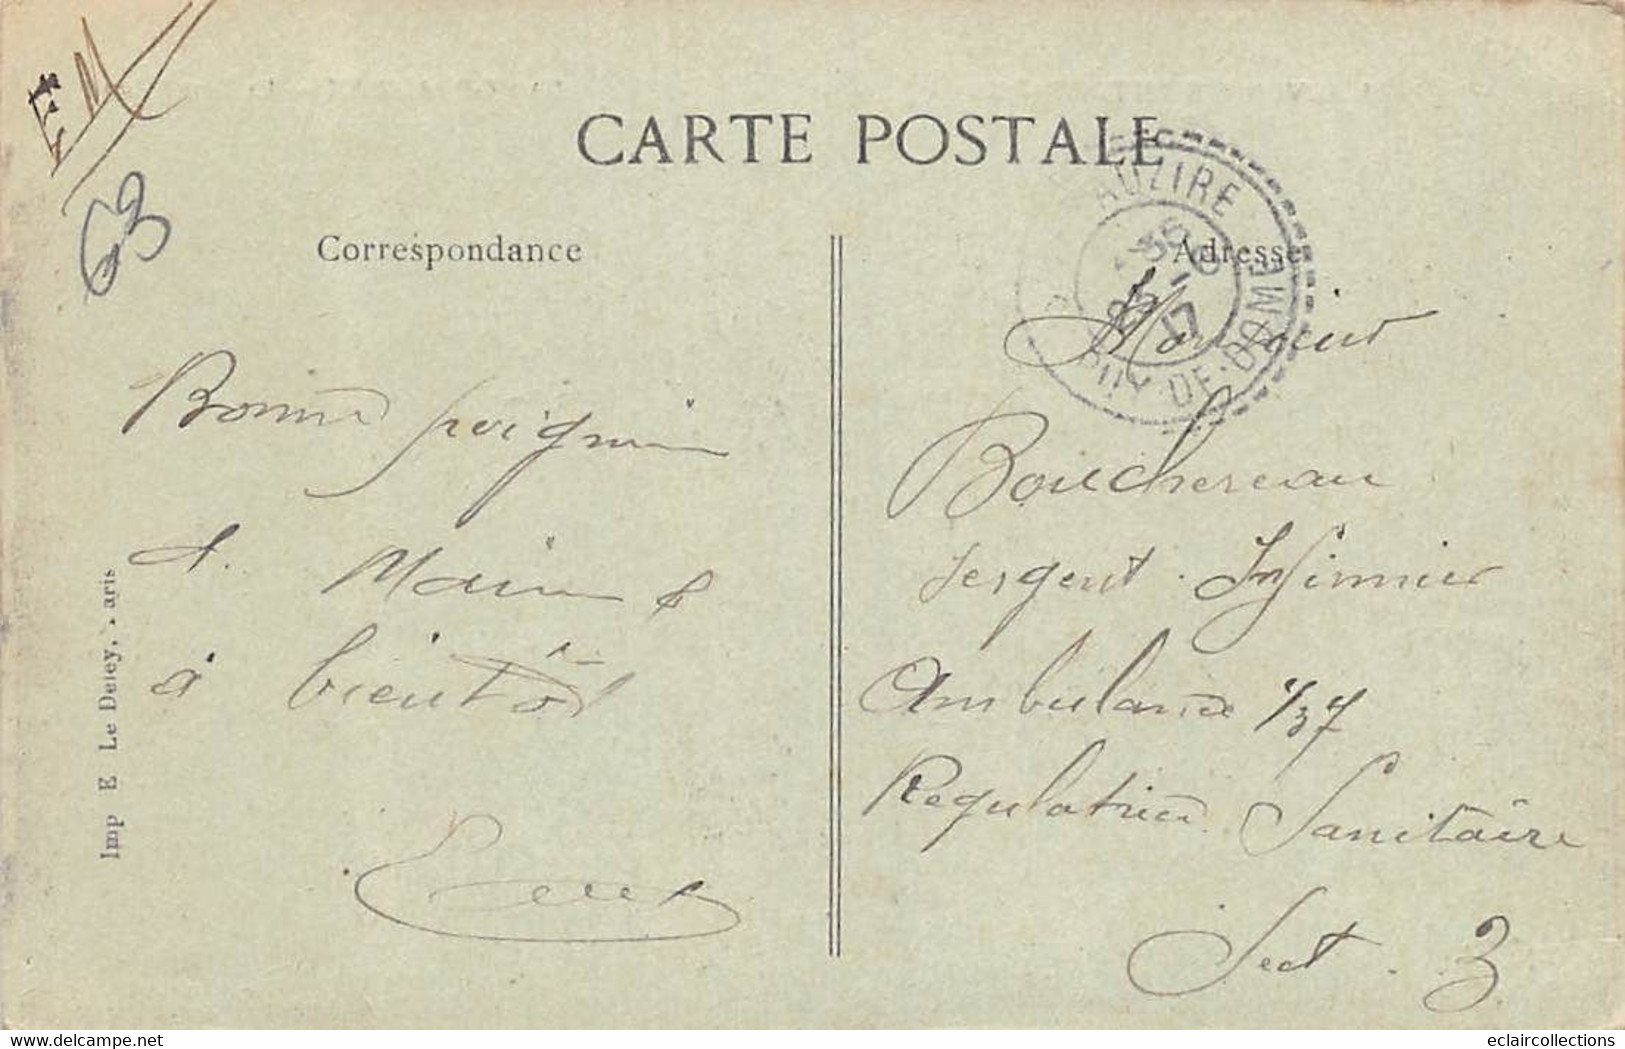 FM
63
CARTE POSTALE
Correspondance
Adresse
AUZIRE
PUY-DE-DOME
17
Bonne poignée
d. Main &
à bientôt
Monsieur
Bouchereau
Sergent. Infirmier
Ambulance 1/37
Régulatrice Sanitaire
Sect. 3
Imp E Le Deley, - aris
www.delcampe.net
eclaircollections